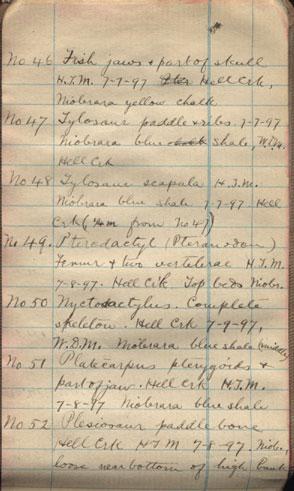 No 46 Fish jaws & part of skull
H.T.M. 7-7-97 Hell Crk,
Niobrara yellow chalk
No 47 Tylosaur paddle & ribs. 7-7-97
Niobrara blue shale, W.D.M.
Hell Crk
No 48 Tylosaur scapula H.T.M.
Niobrara blue shale 7-7-97 Hell
Crk (¼m from No 47)
No 49. Pterodactyl (Pteranodon)
Femur & two vertebrae H.T.M.
7-8-97. Hell Crk. Top beds Niobr.
No 50 Nyctodactylus. Complete
skeleton. Hell Crk 7-9-97,
W.D.M. Niobrara blue shale (middle)
No 51 Platecarpus pterygoids &
part of jaw. Hell Crk H.T.M.
7-8-97 Niobrara blue shale
No 52 Plesiosaur paddle bone
Hell Crk HTM 7-8-97. Niob.,
loose near bottom of high bank